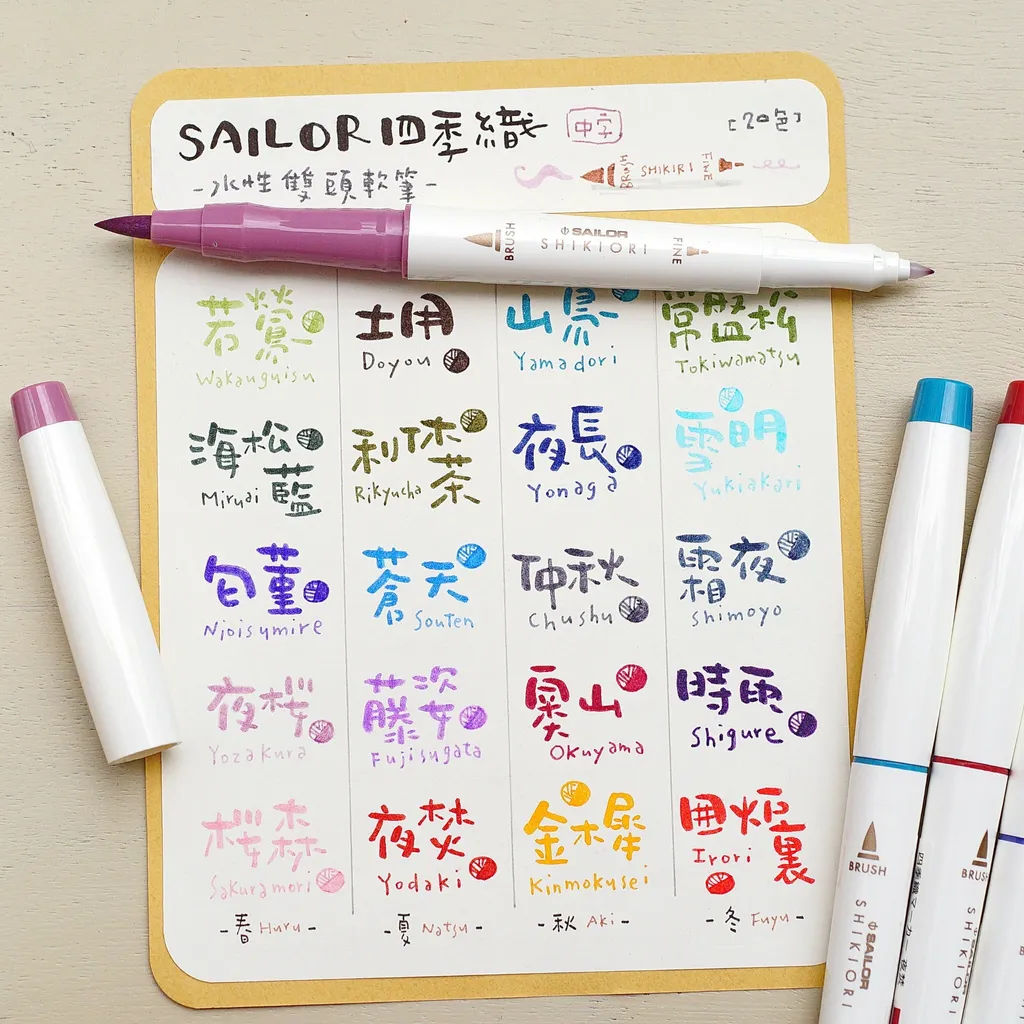 SAILOR 四季織 中字 [20色]
-水性雙頭軟筆- BRUSH SHIKIRI FINE
BRUSH SAILOR SHIKIORI FINE
若鶯 土用 山鳥 常盤松
Wakauguisu Doyou Yamadori Tokiwamatsu
海松藍 利休茶 夜長 雪明
Miruai Rikyucha Yonaga Yukiakari
匂菫 蒼天 仲秋 霜夜
Nioisumire Souten Chushu Shimoyo
夜桜 藤姿 奥山 時雨
Yozakura Fujisugata Okuyama Shigure
桜森 夜焚 金木犀 囲炉裏
Sakuramori Yodaki Kinmokusei Irori
-春 Huru- -夏 Natsu- -秋 Aki- -冬 Fuyu-
BRUSH
SAILOR
SHIKIORI
四季織マーカー
BRUSH
SAILOR
SHIKIORI